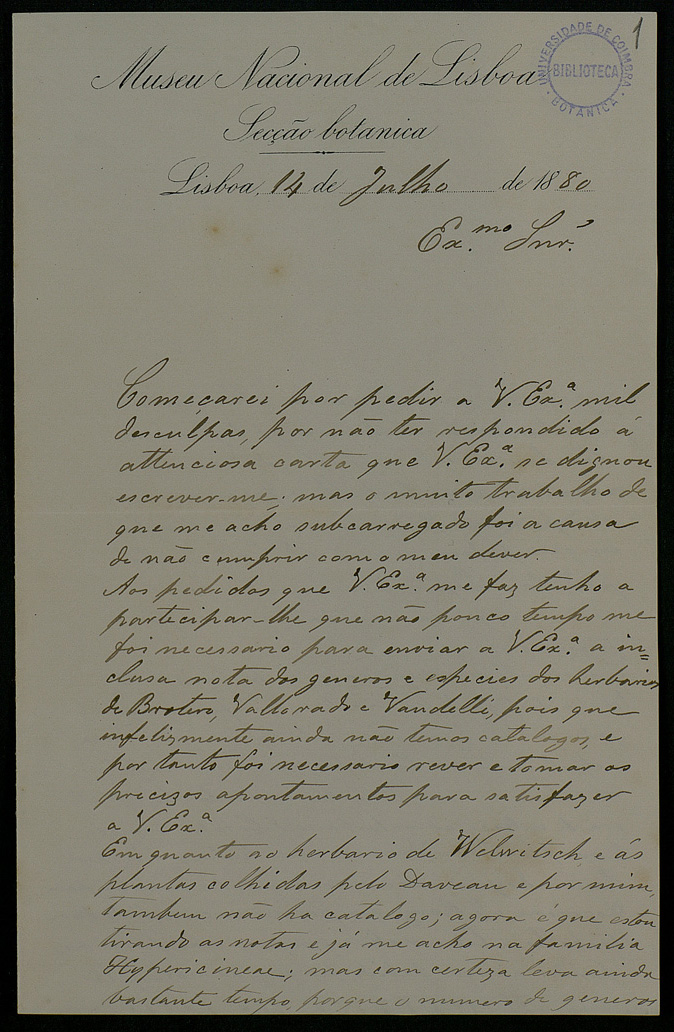 1
UNIVERSIDADE DE COIMBRA
BIBLIOTECA
BOTANICA
Museu Nacional de Lisboa
Secção botanica
Lisboa, 14 de Julho de 1880
Ex.mo Snr.
Começarei por pedir a V. Ex.a mil
desculpas, por não ter respondido á
attenciosa carta que V. Ex.a se dignou
escrever-me; mas o muito trabalho de
que me acho subcarregado foi a causa
de não cumprir com o meu dever.
Aos pedidos que V. Ex.a me faz tenho a
participar-lhe que não pouco tempo me
foi necessario para enviar a V. Ex.a a in=
clusa nota dos generos e especies dos herbarios
de Brotero, Vallorado e Vandelli, pois que
infelizmente ainda não temos catalogos, e
por tanto foi necessario rever e tomar os
precizos apontamentos para satisfazer
a V. Ex.a
Em quanto ao herbario de Welwitsch, e ás
plantas colhidas pelo Daveau e por mim,
tambem não ha catalogo; agora é que estou
tirando as notas e já me acho na familia
Hypericineae; mas com certeza leva ainda
bastante tempo, porque o numero de generos